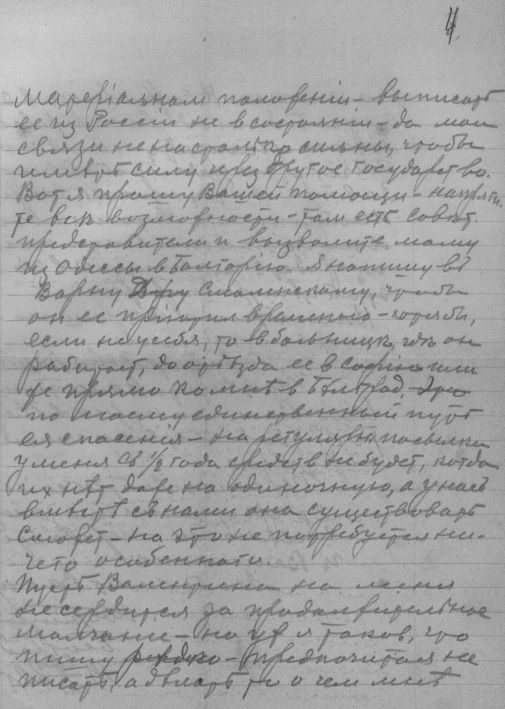 4.
матерiальном положенiи – выписать
ее из Россiи не в состоянiи – да мои
связи не настолько сильны, чтобы
иметь силу через другое государство.
Вот я прошу Вашей помощи – напряги-
те все возможности – там есть совет.
представители и вызволите маму
из Одессы в Болгарiю. Я напишу въ
Варну Смоленскому, чтобы
он ее прiютил временно – хотябы,
если не у себя, то в больнице, где он
работает, до отъезда ее в Софiю или
же прямо ко мне в Белград. Это
по моему единственный путь
ея спасенiя – на регулярн. посылки
у меня съ 1/2 года средств не будет, когда
их нет даже на одиночную, а у насъ
вместе съ нами она существовать
сможет – на это не потребуется ни-
чего особеннаго.
Пусть Валентина на меня
не сердится за продолжительное
молчанiе – но уж я таков, что
пишу редко – предпочитая не
писать, а делать то о чем мне